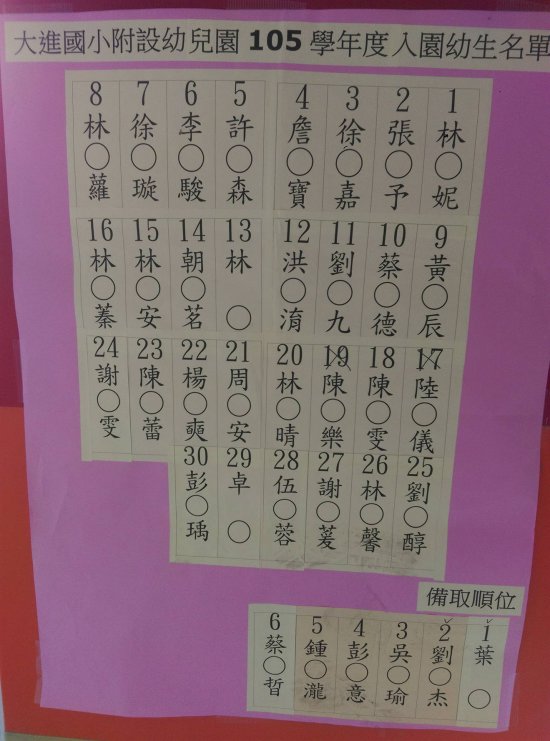 大進國小附設幼兒園 105 學年度入園幼生名單
1 林○妮
2 張○予
3 徐○嘉
4 詹○寶
5 許○森
6 李○駿
7 徐○璇
8 林○蘿
9 黃○辰
10 蔡○德
11 劉○九
12 洪○淯
13 林○
14 朝○茗
15 林○安
16 林○蓁
17 陸○儀
18 陳○雯
19 陳○樂
20 林○晴
21 周○安
22 楊○奭
23 陳○蕾
24 謝○雯
25 劉○醇
26 林○馨
27 謝○萲
28 伍○蓉
29 卓○
30 彭○瑀
備取順位
1 葉○
2 劉○杰
3 吳○瑜
4 彭○意
5 鍾○瀧
6 蔡○晢